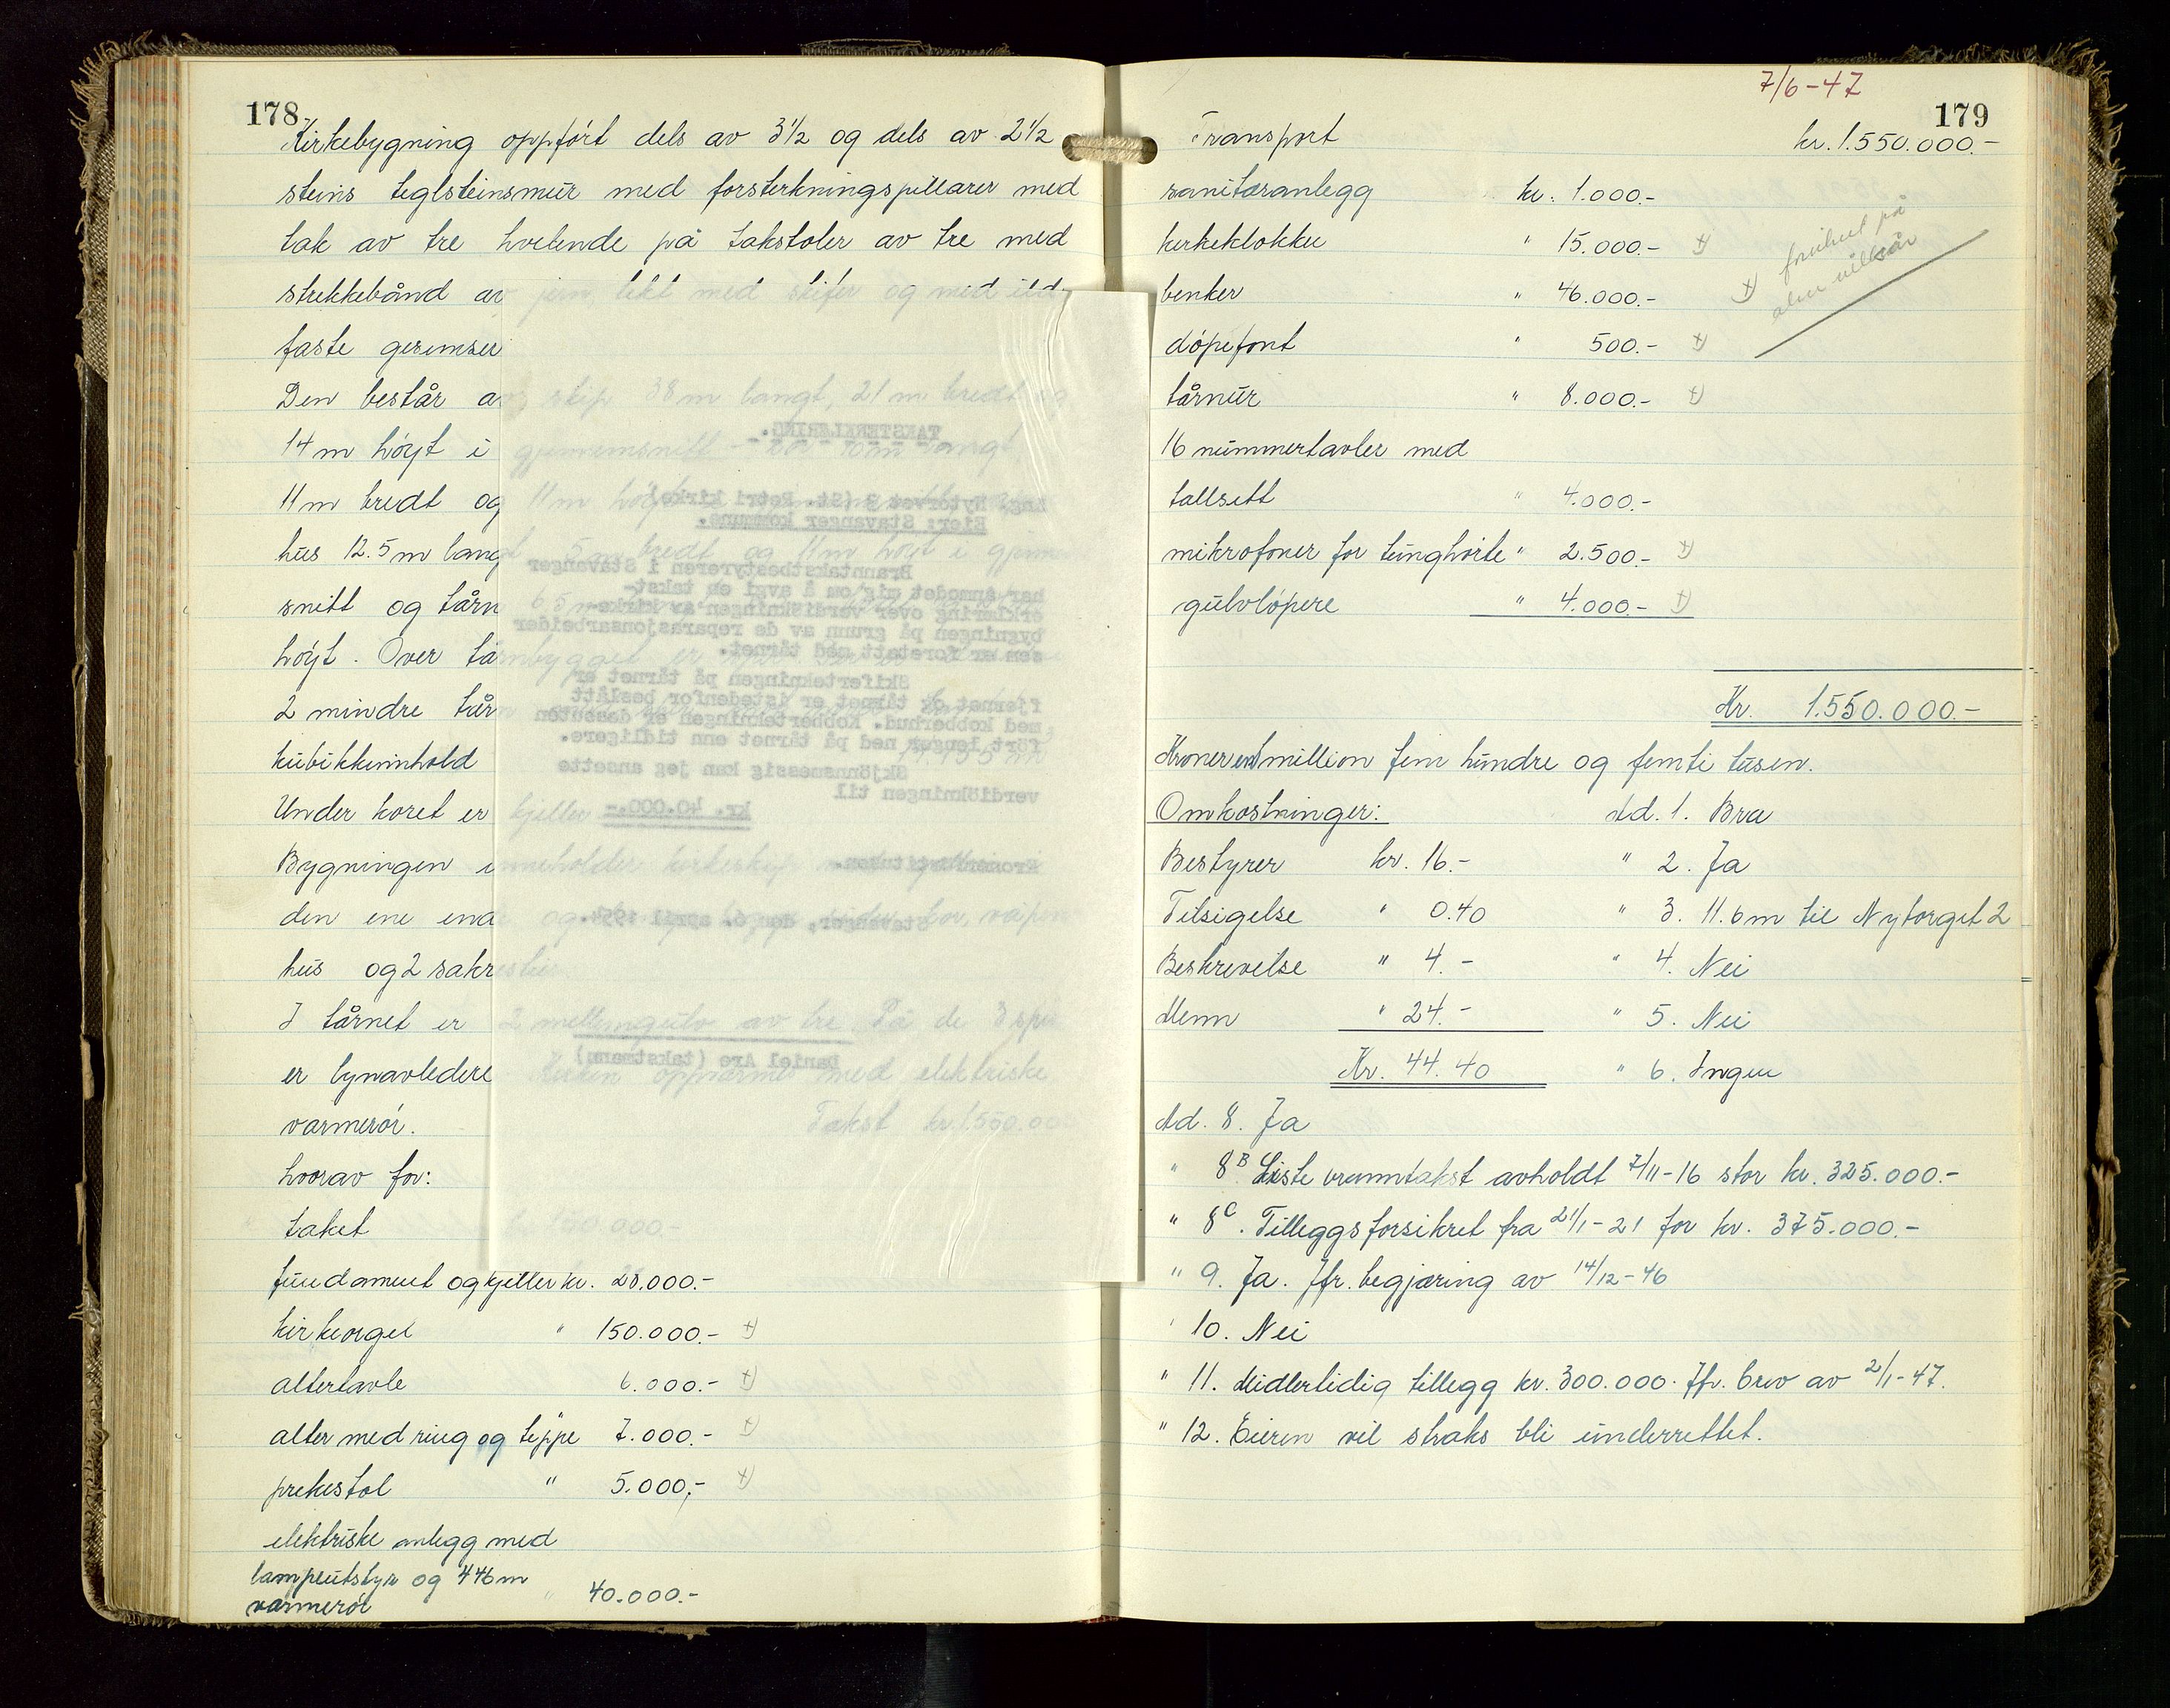 178
Kirkebygning oppført dels av 3½ og dels av 2½
steins teglsteinsmur med forsterkningspillarer med
tak av tre hvelende på takstoler av tre med
strekkebånd av jern, tekt med skifer og med ild-
faste gesimser
Den består av skip 38 m langt, 21 m bredt og
14 m høyt i gjennemsnitt langt
11 m bredt og 11 m
hus 12.5 m langt 5 m bredt og 11 m høyt i gjenn
snitt og tårn 6.5 m
høyt. Over tårnbygget er
2 mindre tårn
kubikkinnhold
Under koret er kjeller
Bygningen inneholder kirkeskip
den ene enda og kor, våpen
hus og 2 sakrestier
I tårnet er 2 mellemgulv av tre På de 3 spir
er lynavledere Kirken oppvarmes med elektriske
varmerør. Takst kr. 1.550.000
hvorav for:
taket kr. 150.000-
fundament og kjeller kr. 28.000.-
kirkeorgel " 150.000.- +)
altertavle 6.000.- +)
alter med ring og teppe " 7.000.- +)
prekestol " 5.000,- +)
elektriske anlegg med
lampeutstyr og 446 m
varmerør " 40.000.-
TAKSTERKLÆRING.
Ang. Nytorvet 9 (St. Petri kirke)
Eier: Stavanger kommune.
Branntakstbestyreren i Stavanger
har anmodet mig om å avgi en takst-
erklæring over verdiökningen av kirke-
bygningen på grunn av de reparasjonsarbeider
som er foretatt med tårnet.
Skifertekningen på tårnet er
fjernet og tårnet er istedenfor beslått
med kobberhud. Kobbertekningen er dessuten
fört lenger ned på tårnet enn tidligere.
Skjönnsmessig kan jeg ansette
verdiökningen til
kr. 40.000.-
Kronerførtitusen.
Stavanger, den 6. april 1954.
Daniel Are (takstmann)
7/6-47
179
Transport kr. 1.550.000.-
sanitæranlegg kr. 1.000.-
kirkeklokke " 15.000.- +)
benker " 46.000.-
døpefont " 500.- +)
tårnur " 8.000.- +)
16 nummertavler med
tallsett " 4.000.-
mikrofoner for tunghørte " 2.500.- +)
gulvløpere " 4.000.- +)
+) forsikret på
alm vilkår
Kr. 1.550.000.-
Kroner en million fem hundre og femti tusen.
Omkostninger: Ad. 1. Bra
Bestyrer kr. 16.- " 2. Ja
Tilsigelse " 0.40 " 3. 11.6 m til Nytorget 2
Beskrivelse " 4.- " 4. Nei
Menn " 24.- " 5. Nei
Kr. 44.40 " 6. Ingen
Ad. 8. Ja
" 8B Siste branntakst avholdt 7/11-16 stor kr. 325.000.-
" 8C. Tilleggsforsikret fra 21/1-21 for kr. 375.000.-
" 9. Ja. Jfr. begjæring av 14/12-46
" 10. Nei
" 11. Midlertidig tillegg kr. 300.000. Jfr. brev av 2/1-47.
" 12. Eieren vil straks bli underrettet.